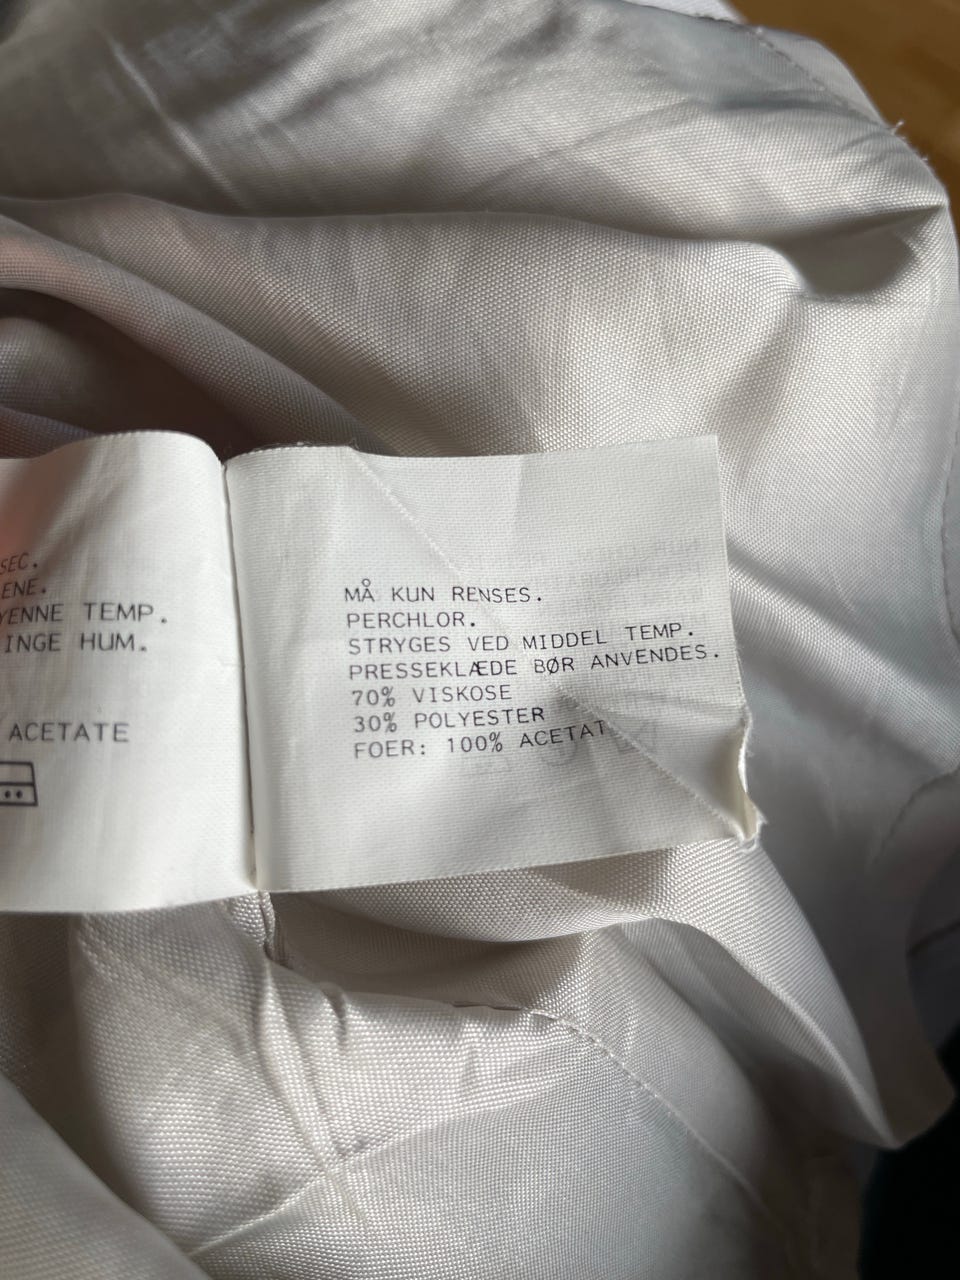 SEC.
ENE.
YENNE TEMP.
INGE HUM.
ACETATE
MÅ KUN RENSES.
PERCHLOR.
STRYGES VED MIDDEL TEMP.
PRESSEKLÆDE BØR ANVENDES.
70% VISKOSE
30% POLYESTER
FOER: 100% ACETAT